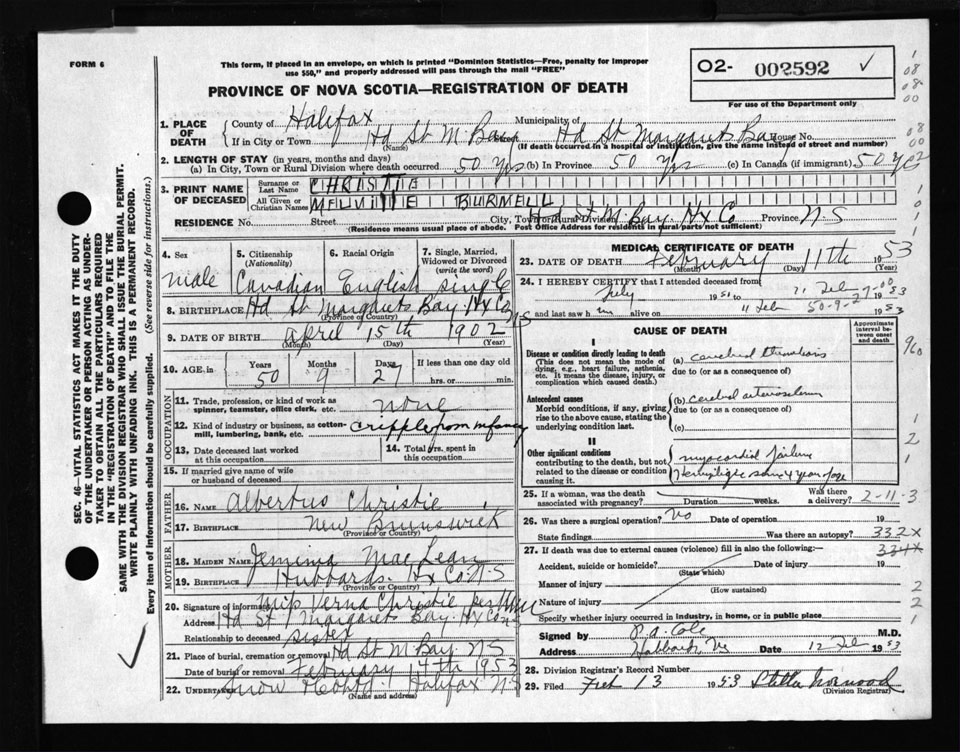 FORM 6
This form, if placed in an envelope, on which is printed "Dominion Statistics—Free, penalty for improper
use $50," and properly addressed will pass through the mail "FREE"
O2- 002592 ✓
For use of the Department only
PROVINCE OF NOVA SCOTIA—REGISTRATION OF DEATH
1. PLACE OF DEATH
County of Halifax Municipality of
If in City or Town Hd St M Bay Hd St Margarets Bay House No.
(Name) (If death occurred in a hospital or institution, give the name instead of street and number)
2. LENGTH OF STAY (in years, months and days)
(a) In City, Town or Rural Division where death occurred 50 Yrs (b) In Province 50 Yrs (c) In Canada (if immigrant) 50 Yrs
3. PRINT NAME OF DECEASED
Surname or Last Name CHRISTIE
All Given or Christian Names MELVILLE BURNELL
RESIDENCE No. Street City, Town or Rural Division Hd St M Bay Hx Co Province N-S
(Residence means usual place of abode. Post Office Address for residents in rural parts not sufficient)
4. Sex male
5. Citizenship (Nationality) Canadian
6. Racial Origin English
7. Single, Married, Widowed or Divorced (write the word) single
8. BIRTHPLACE Hd St Margarets Bay Hx Co NS
(Province or Country)
9. DATE OF BIRTH April 15th 1902
(Month) (Day) (Year)
10. AGE in Years 50 Months 9 Days 27 If less than one day old hrs. or min.
OCCUPATION
11. Trade, profession, or kind of work as spinner, teamster, office clerk, etc. none
12. Kind of industry or business, as cotton-mill, lumbering, bank, etc. cripple from infancy
13. Date deceased last worked at this occupation
14. Total yrs. spent in this occupation
15. If married give name of wife or husband of deceased
FATHER
16. Name Albertus Christie
17. Birthplace New Brunswick
(Province or Country)
MOTHER
18. Maiden Name Jemima MacLean
19. Birthplace Hubbards. Hx Co. N-S
(Province or Country)
20. Signature of informant Miss Verna Christie
Address Hd St Margarets Bay Hx Co N-S
Relationship to deceased sister
21. Place of burial, cremation or removal Hd St M Bay NS
Date of burial or removal February 14th 1953
22. Undertaker Snow & Co Ltd Halifax N-S
(Name and address)
MEDICAL CERTIFICATE OF DEATH
23. DATE OF DEATH February 11th 1953
(Month) (Day) (Year)
24. I HEREBY CERTIFY that I attended deceased from
July 1951 to 11 Feb 1953
and last saw him alive on 11 Feb 1953
50-9-27
CAUSE OF DEATH
Approximate interval between onset and death
I
Disease or condition directly leading to death
(This does not mean the mode of dying, e.g., heart failure, asthenia, etc. It means the disease, injury, or complication which caused death.)
(a) cerebral thrombosis
due to (or as a consequence of)
Antecedent causes
Morbid conditions, if any, giving rise to the above cause, stating the underlying condition last.
(b) cerebral arteriosclerosis
due to (or as a consequence of)
(c)
II
Other significant conditions contributing to the death, but not related to the disease or condition causing it.
myocardial failure
Hemiplegia since 4 years of age
25. If a woman, was the death associated with pregnancy? Duration weeks. Was there a delivery? 2-11-3
26. Was there a surgical operation? No Date of operation 19
State findings Was there an autopsy? 332X
27. If death was due to external causes (violence) fill in also the following:— 334X
Accident, suicide or homicide? Date of injury 19
(State which)
Manner of injury
(How sustained)
Nature of injury
Specify whether injury occurred in industry, in home, or in public place
Signed by R. A. Cole M.D.
Address Hubbards NS Date 12 Feb 1953
28. Division Registrar's Record Number
29. Filed Feb 13 1953 Stella Norwood
(Division Registrar)
SEC. 46—VITAL STATISTICS ACT MAKES IT THE DUTY
OF THE UNDERTAKER OR PERSON ACTING AS UNDER-
TAKER TO OBTAIN ALL THE PARTICULARS REQUIRED
IN THE "REGISTRATION OF DEATH" AND TO FILE THE
SAME WITH THE DIVISION REGISTRAR WHO SHALL ISSUE THE BURIAL PERMIT.
WRITE PLAINLY WITH UNFADING INK. THIS IS A PERMANENT RECORD.
Every item of Information should be carefully supplied. (See reverse side for instructions.)